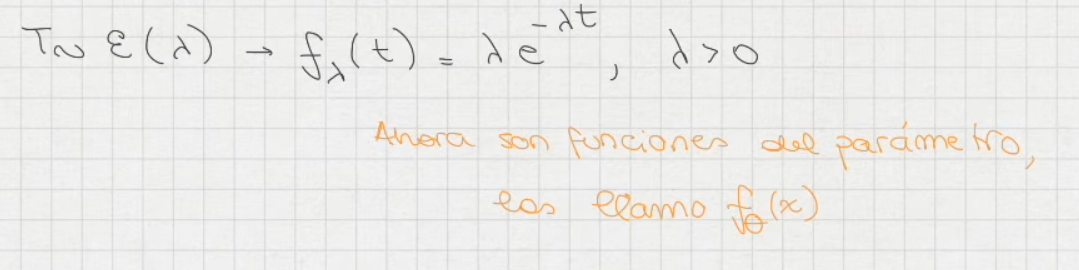 T ~ ε(λ) → f_λ(t) = λ e^{-λt}, λ > 0
Ahora son funciones del parámetro,
las llamo f_θ(x)